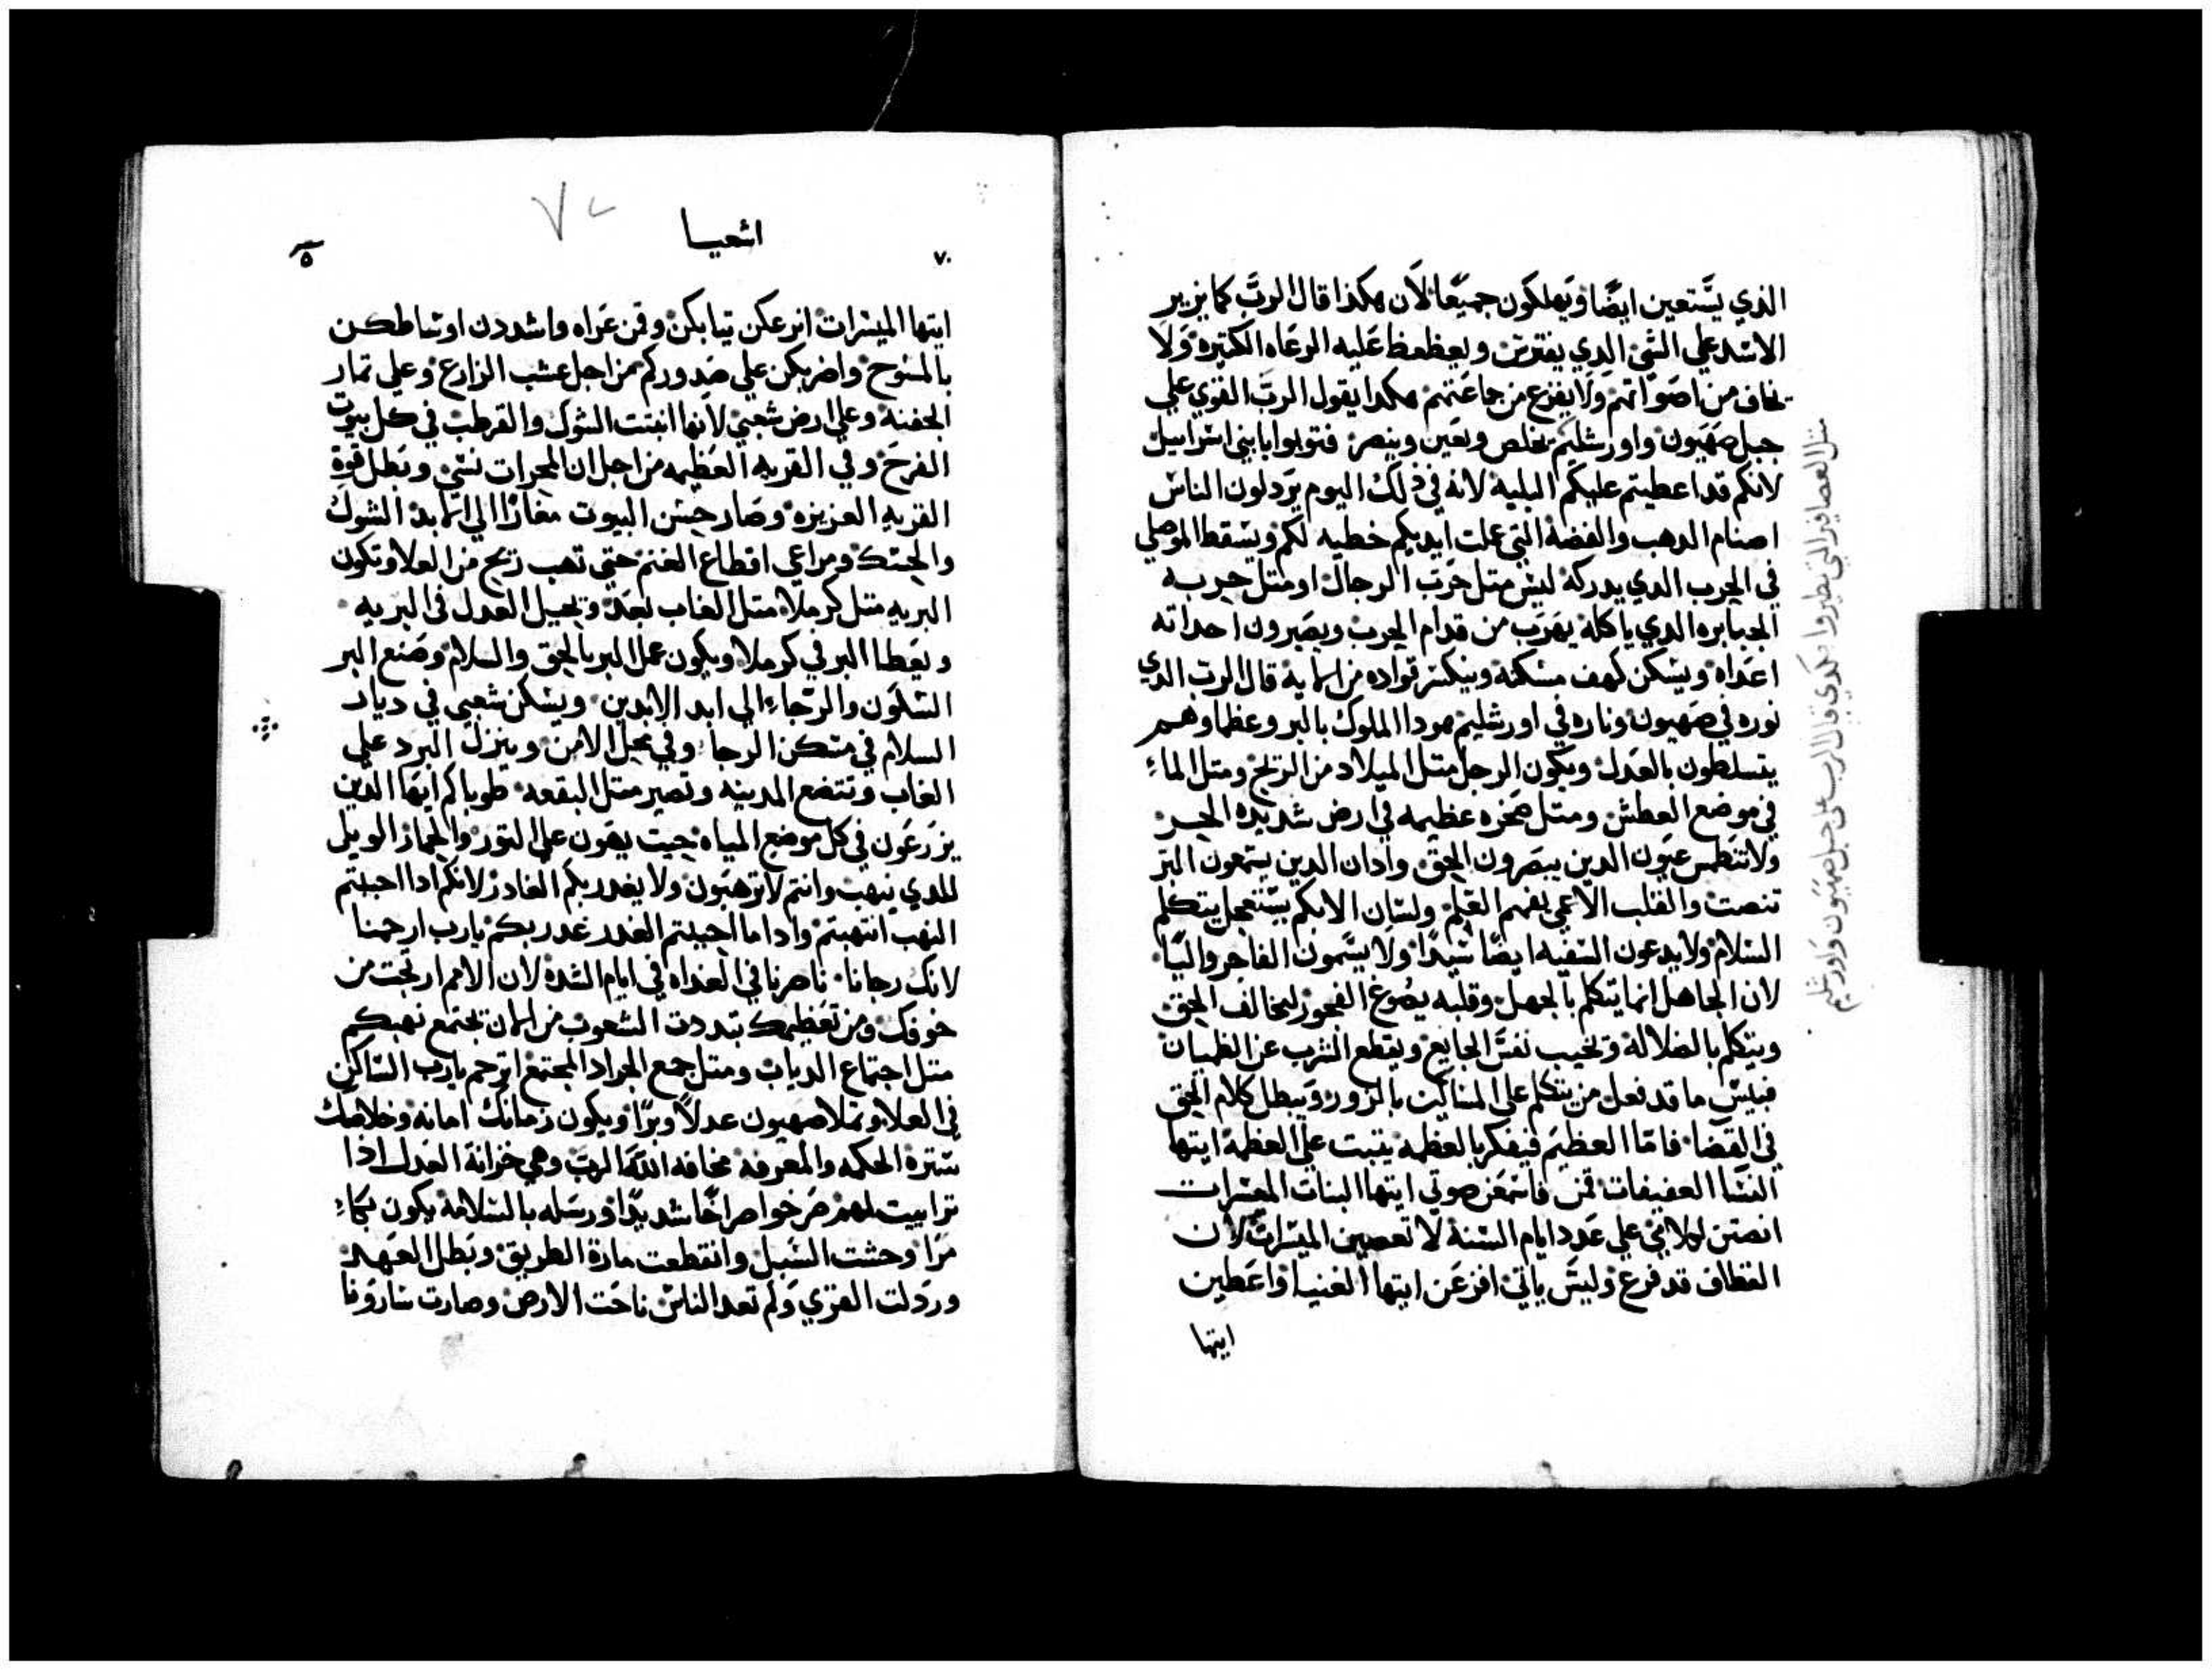 الذي يستعين ايضا ويهلكون جميعا لان هكذا قال الرب كما يزير
الاسد على الشي الدي يفترس ويعظعظ عليه الرعاه الكتيره ولا
يخاف من اصواتهم ولا يفزع من جماعتهم هكدا يقول الرب القوي على
جبل صهيون واورشليم يخلص ويعين وينصر فتوبوا يا بني اسراييل
لانكم قد اعطيتم عليكم البليه لانه في ذلك اليوم يردلون الناس
اصنام الدهب والفضه التي عملت ايديكم خطيه لكم ويسقط الموصلي
في الحرب الدي يدركه ليس متل حرب الرجال او متل حربه
الجبابره الدي ياكله يهرب من قدام الحرب ويصيرون احداته
اعداه ويسكن كهف مسكنه وينكسر قواده من اماية قال الرب الدي
نوره في صهيون وناره في اورشليم هودا الملوك بالبر وعظما وهم
يتسلطون بالعدل ويكون الرجل متل الميلاد من الريح ومتل الماء
في موضع العطش ومتل صخره عظيمه في ارض شديده الحر
ولا تنطمس عيون الدين يبصرون الحق وادان الدين يسمعون البر
تنصت والقلب الاعمي يفهم العلم ولسان الابكم يستعجل يتكلم
السلام ولا يدعون السفيه ايضا سيدا ولا يسمون الفاجر
لان الجاهل انما يتكلم بالجهل وقلبه يصوغ الفجور ليخالف الحق
ويتكلم بالضلالة ويخيب نفس الجايع ويقطع المشرب عن الظميان
فبيس ما قد فعل من يتكلم على المساكين بالزور ويبطل كلام الحق
في القضا فاما العظيم فيفكر بالعظمه يتبت على العظمة ايتها
النسا العفيفات قمن فاسمعن صوتي ايتها البنات المعسرات
انصتن لكلامي على عدد ايام السنة لا تعصين الميسرات لان
القطاف قد فرغ وليس ياتي افزعن ايتها الغنيا واعطين
ايتها
متل العصافير التي يطيروا هكدي قال الرب على جبل صهيون واورشليم
اشعيا
٧٠
ايتها الميسرات انزعكن تيابكن وقمن عراه واشددن اوساطكن
بالمسوح واضربكن على صدوركم من اجل عشب الزارع وعلى تمار
الجفنه وعلى ارض شعبي لانها انبتت الشوك والقرطب في كل بيوت
الفرح وفي القريه العظيمه من اجل ان الحجرات نسي وبطل قوة
القريه العزيزه وصار حسن البيوت مغازا الي الابد الشوك
والحسك ومراعي اقطاع الغنم حتى تهب ريح من العلا وتكون
البريه متل كرملا متل الغاب تعد ويحيل العدل في البريه
ويعطا البر في كرملا ويكون عمل البر بالحق والسلام وصنع البر
السكون والرجاء الي ابد الابدين ويسكن شعبي في ديار
السلام في مسكن الرجا وفي محل الامن وينزل البرد على
الغاب وتتضع المدينه وتصير متل البقعه طوباكم ايها الدين
يزرعون في كل موضع المياه حيت يهون على التور والحمار الويل
للدي ينهب وانتم لا ترهبون ولا يغدر بكم الغادر لانكم ادا احببتم
النهب انتهبتم وادا ما احببتم الغدر غدر بكم يا رب ارحمنا
لانك رجانا ناصرنا في الغداه في ايام الشده لان الامم ارتجت من
خوفك ومن تعظيمك تبددت الشعوب من الان يجتمع نهبكم
متل اجتماع الدباب ومتل جمع الجراد المجتمع ارحم يارب الساكن
في العلا وتملا صهيون عدلا وبرا ويكون زمانك امانه وخلاصك
ستره الحكمه والمعرفه مخافه الله الرب وهي خزانة العدل اذا
ترابيت لهم صرخوا صراخا شديدا ورسله بالسلامة يكون بكاء
مرا وحشت السبل وانقطعت مارة الطريق وبطل العهد
وردلت القري ولم تعد الناس ناحت الارض وصارت سارونا